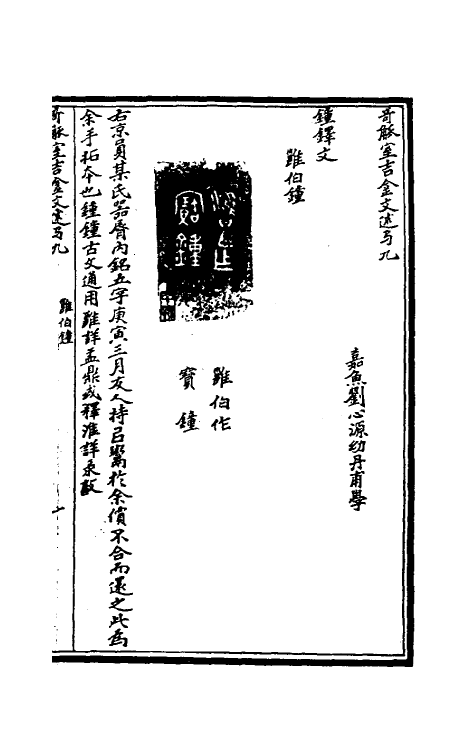 奇觚室吉金文述弓九
嘉魚劉心源幼丹甫學
鐘鐸文
雝伯鐘
雝伯作
寶鐘
右京員某氏器脣內銘五字庚寅三月友人持㠯鬻於余償不合而還之此為
余手拓本也鐘鍾古文通用雝詳盂鼎或釋淮詳彔𣪘
奇觚室吉金文述弓九
雝伯鐘
一